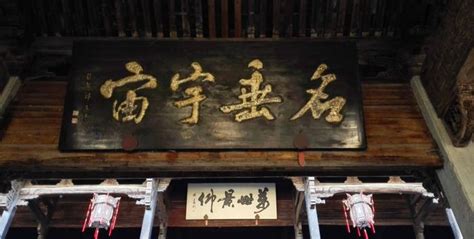 名垂宇宙
萬世景仰